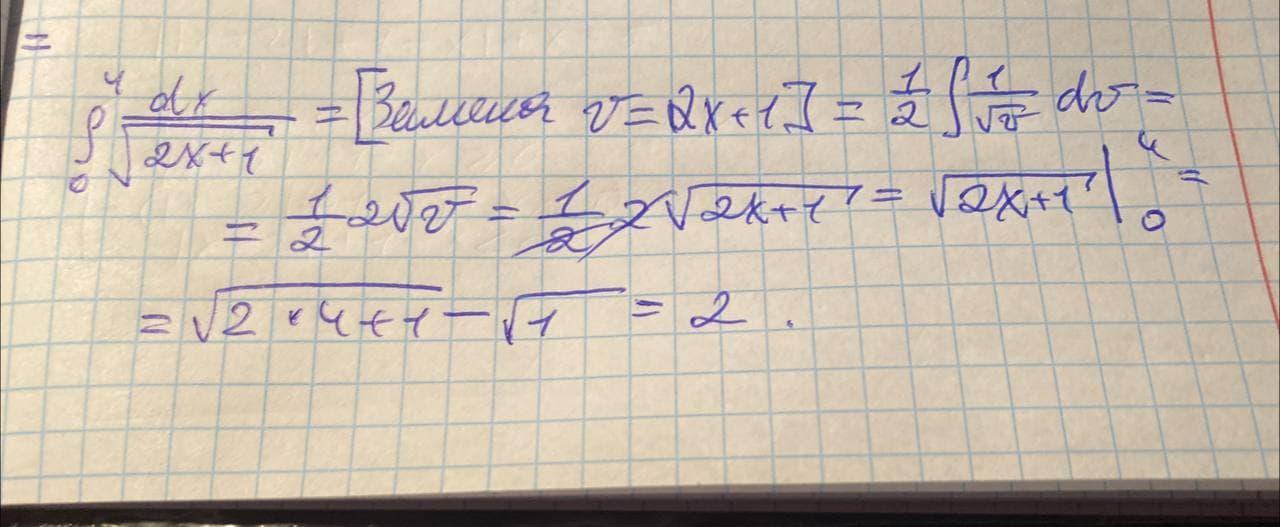 =
∫₀⁴ dx/√(2x+1) = [Замена v=2x+1] = 1/2 ∫ 1/√v dv =
= 1/2 2√v = 1/2 2√(2x+1) = √(2x+1) |₀⁴ =
= √(2·4+1) − √1 = 2.